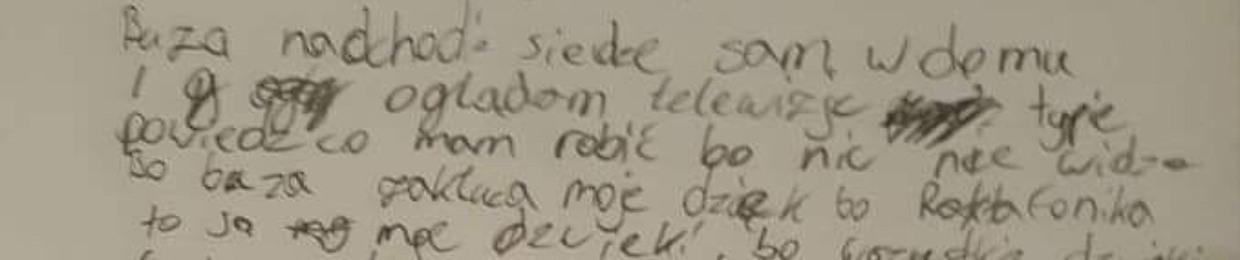 Buza nadchodi siedze sam w domu
I oglądom telewizje typie
powiedz co mam robić bo nic nie widze
bo baza zakłuca moje dzięk bo
to ja moe dzwięki bo